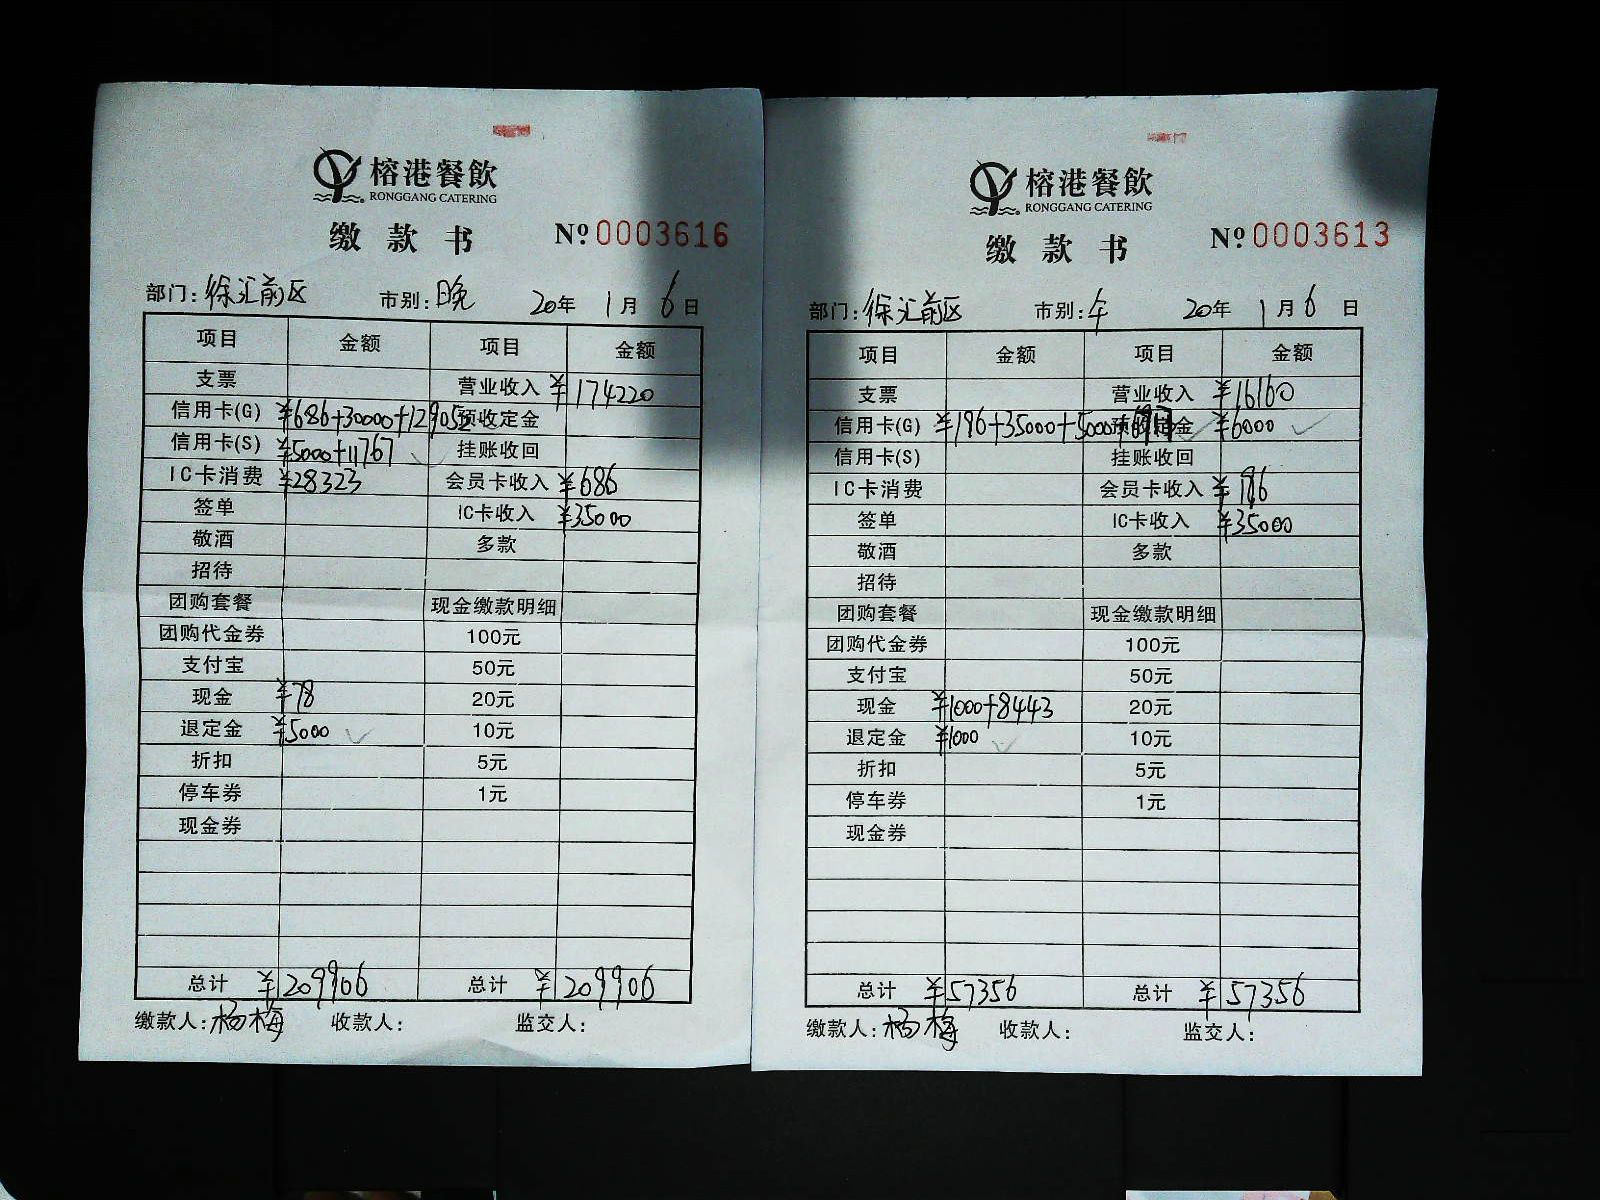 榕港餐飲
RONGGANG CATERING
缴款书 Nº 0003616
部门: 徐汇前区 市别: 晚 20年 1月 6日
项目 金额 项目 金额
支票 营业收入 ¥174220
信用卡(G) ¥686+30000+129052 预收定金
信用卡(S) ¥5000+11767 挂账收回
IC卡消费 ¥28323 会员卡收入 ¥686
签单 IC卡收入 ¥35000
敬酒 多款
招待
团购套餐 现金缴款明细
团购代金券 100元
支付宝 50元
现金 ¥78 20元
退定金 ¥5000 10元
折扣 5元
停车券 1元
现金券
总计 ¥209906 总计 ¥209906
缴款人: 杨梅 收款人: 监交人:
榕港餐飲
RONGGANG CATERING
缴款书 Nº 0003613
部门: 徐汇前区 市别: 午 20年 1月 6日
项目 金额 项目 金额
支票 营业收入 ¥16160
信用卡(G) ¥196+35000+5000+6717 预收定金 ¥6000
信用卡(S) 挂账收回
IC卡消费 会员卡收入 ¥196
签单 IC卡收入 ¥35000
敬酒 多款
招待
团购套餐 现金缴款明细
团购代金券 100元
支付宝 50元
现金 ¥1000+8443 20元
退定金 ¥1000 10元
折扣 5元
停车券 1元
现金券
总计 ¥57356 总计 ¥57356
缴款人: 杨梅 收款人: 监交人: